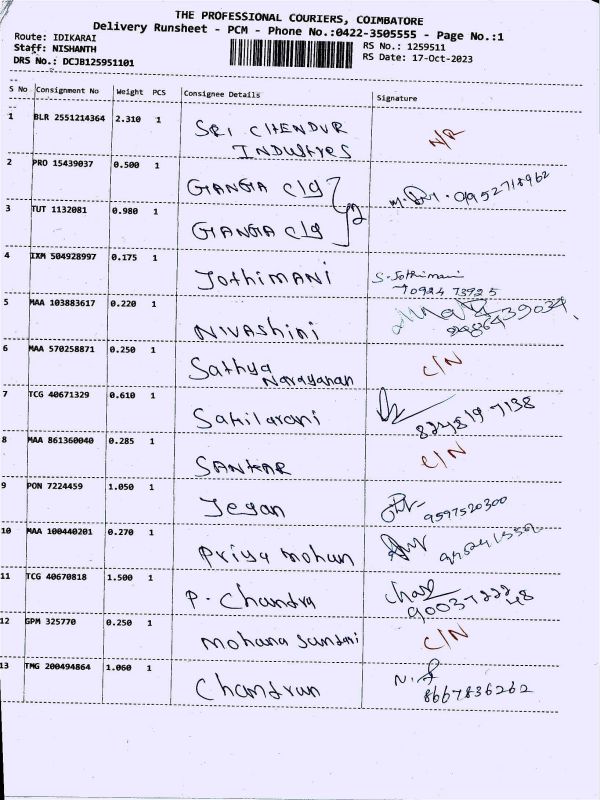 THE PROFESSIONAL COURIERS, COIMBATORE
Delivery Runsheet - PCM - Phone No.:0422-3505555 - Page No.:1
Route: IDIKARAI
Staff: NISHANTH
DRS No.: DCJB125951101
RS No.: 1259511
RS Date: 17-Oct-2023
S No Consignment No Weight PCS Consignee Details Signature
1 BLR 2551214364 2.310 1 SRI CHENDUR N/R
INDUSTRES
2 PRO 15439037 0.500 1 GANGA C/G 9952718962
3 TUT 1132081 0.980 1 GANGA C/G
4 IXM 504928997 0.175 1 Jothimani S-Jothimani
70924 73925
5 MAA 103883617 0.220 1 Nivashini
6 MAA 570258871 0.250 1 Sathya C/N
Narayanan
7 TCG 40671329 0.610 1 Sakilarani 8248197138
8 MAA 861360040 0.285 1 SANKAR C/N
9 PON 7224459 1.050 1 Jegan 9597520300
10 MAA 100440201 0.270 1 Priya mohan
11 TCG 40670818 1.500 1 P. Chandra
12 GPM 325770 0.250 1 mohana sundari C/N
13 TMG 200494864 1.060 1 Chandran 8667836262